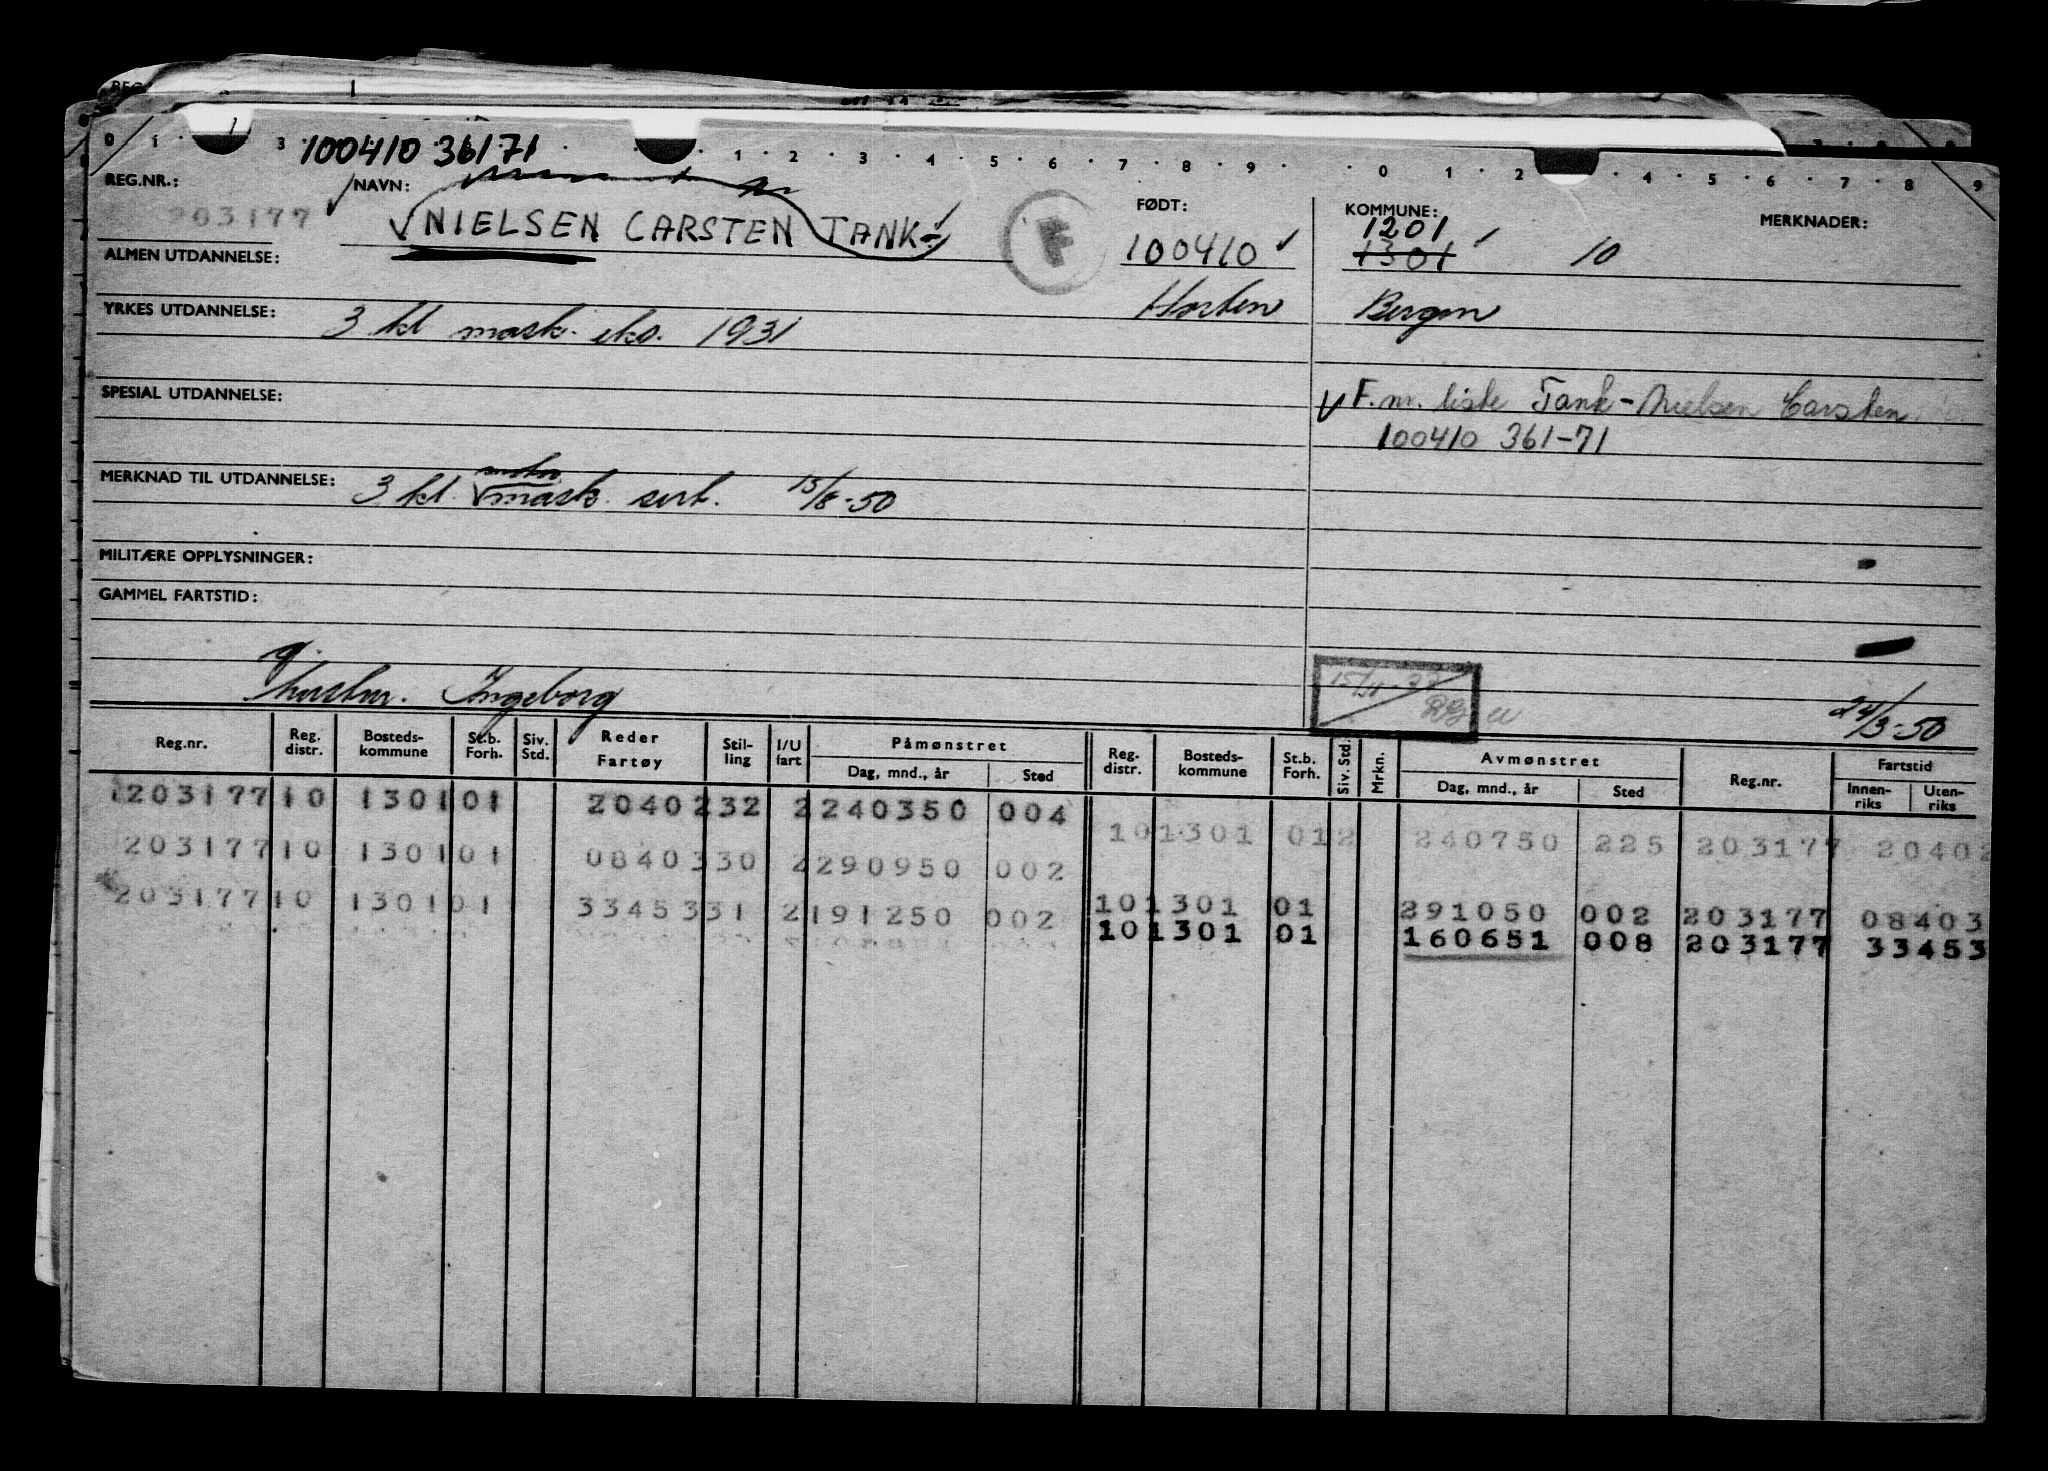 REG.
0 1 3 1 2 3 4 5 6 7 8 9 0 1 2 4 5 6 7 8 9
100410 36171
REG.NR.: NAVN: FØDT: KOMMUNE: MERKNADER:
203177 NIELSEN CARSTEN TANK- F 100410 1201
1301 10
ALMEN UTDANNELSE: Horten Bergen
YRKES UTDANNELSE: 3 kl mask. eks. 1931
SPESIAL UTDANNELSE: F.m. liste Tank-Nielsen Carsten
100410 361-71
MERKNAD TIL UTDANNELSE: 3 kl. motor mask. sert. 15/8-50
MILITÆRE OPPLYSNINGER:
GAMMEL FARTSTID:
g.
hustru. Ingeborg 24/3-50
Reg.nr. Reg. distr. Bosteds-kommune St.b. Forh. Siv. Std. Reder Fartøy Stil-ling I/U fart Påmønstret Dag, mnd., år Sted Reg. distr. Bosteds-kommune St.b. Forh. Siv. Std. Mrkn. Avmønstret Dag, mnd., år Sted Reg.nr. Fartstid Innen-riks Uten-riks
1203177 10 1301 01 2040232 2 240350 004
101301 012 240750 225 203177 20402
203177 10 1301 01 0840330 2 290950 002
101301 01 291050 002 203177 08403
203177 10 1301 01 3345331 2 191250 002
101301 01 160651 008 203177 33453